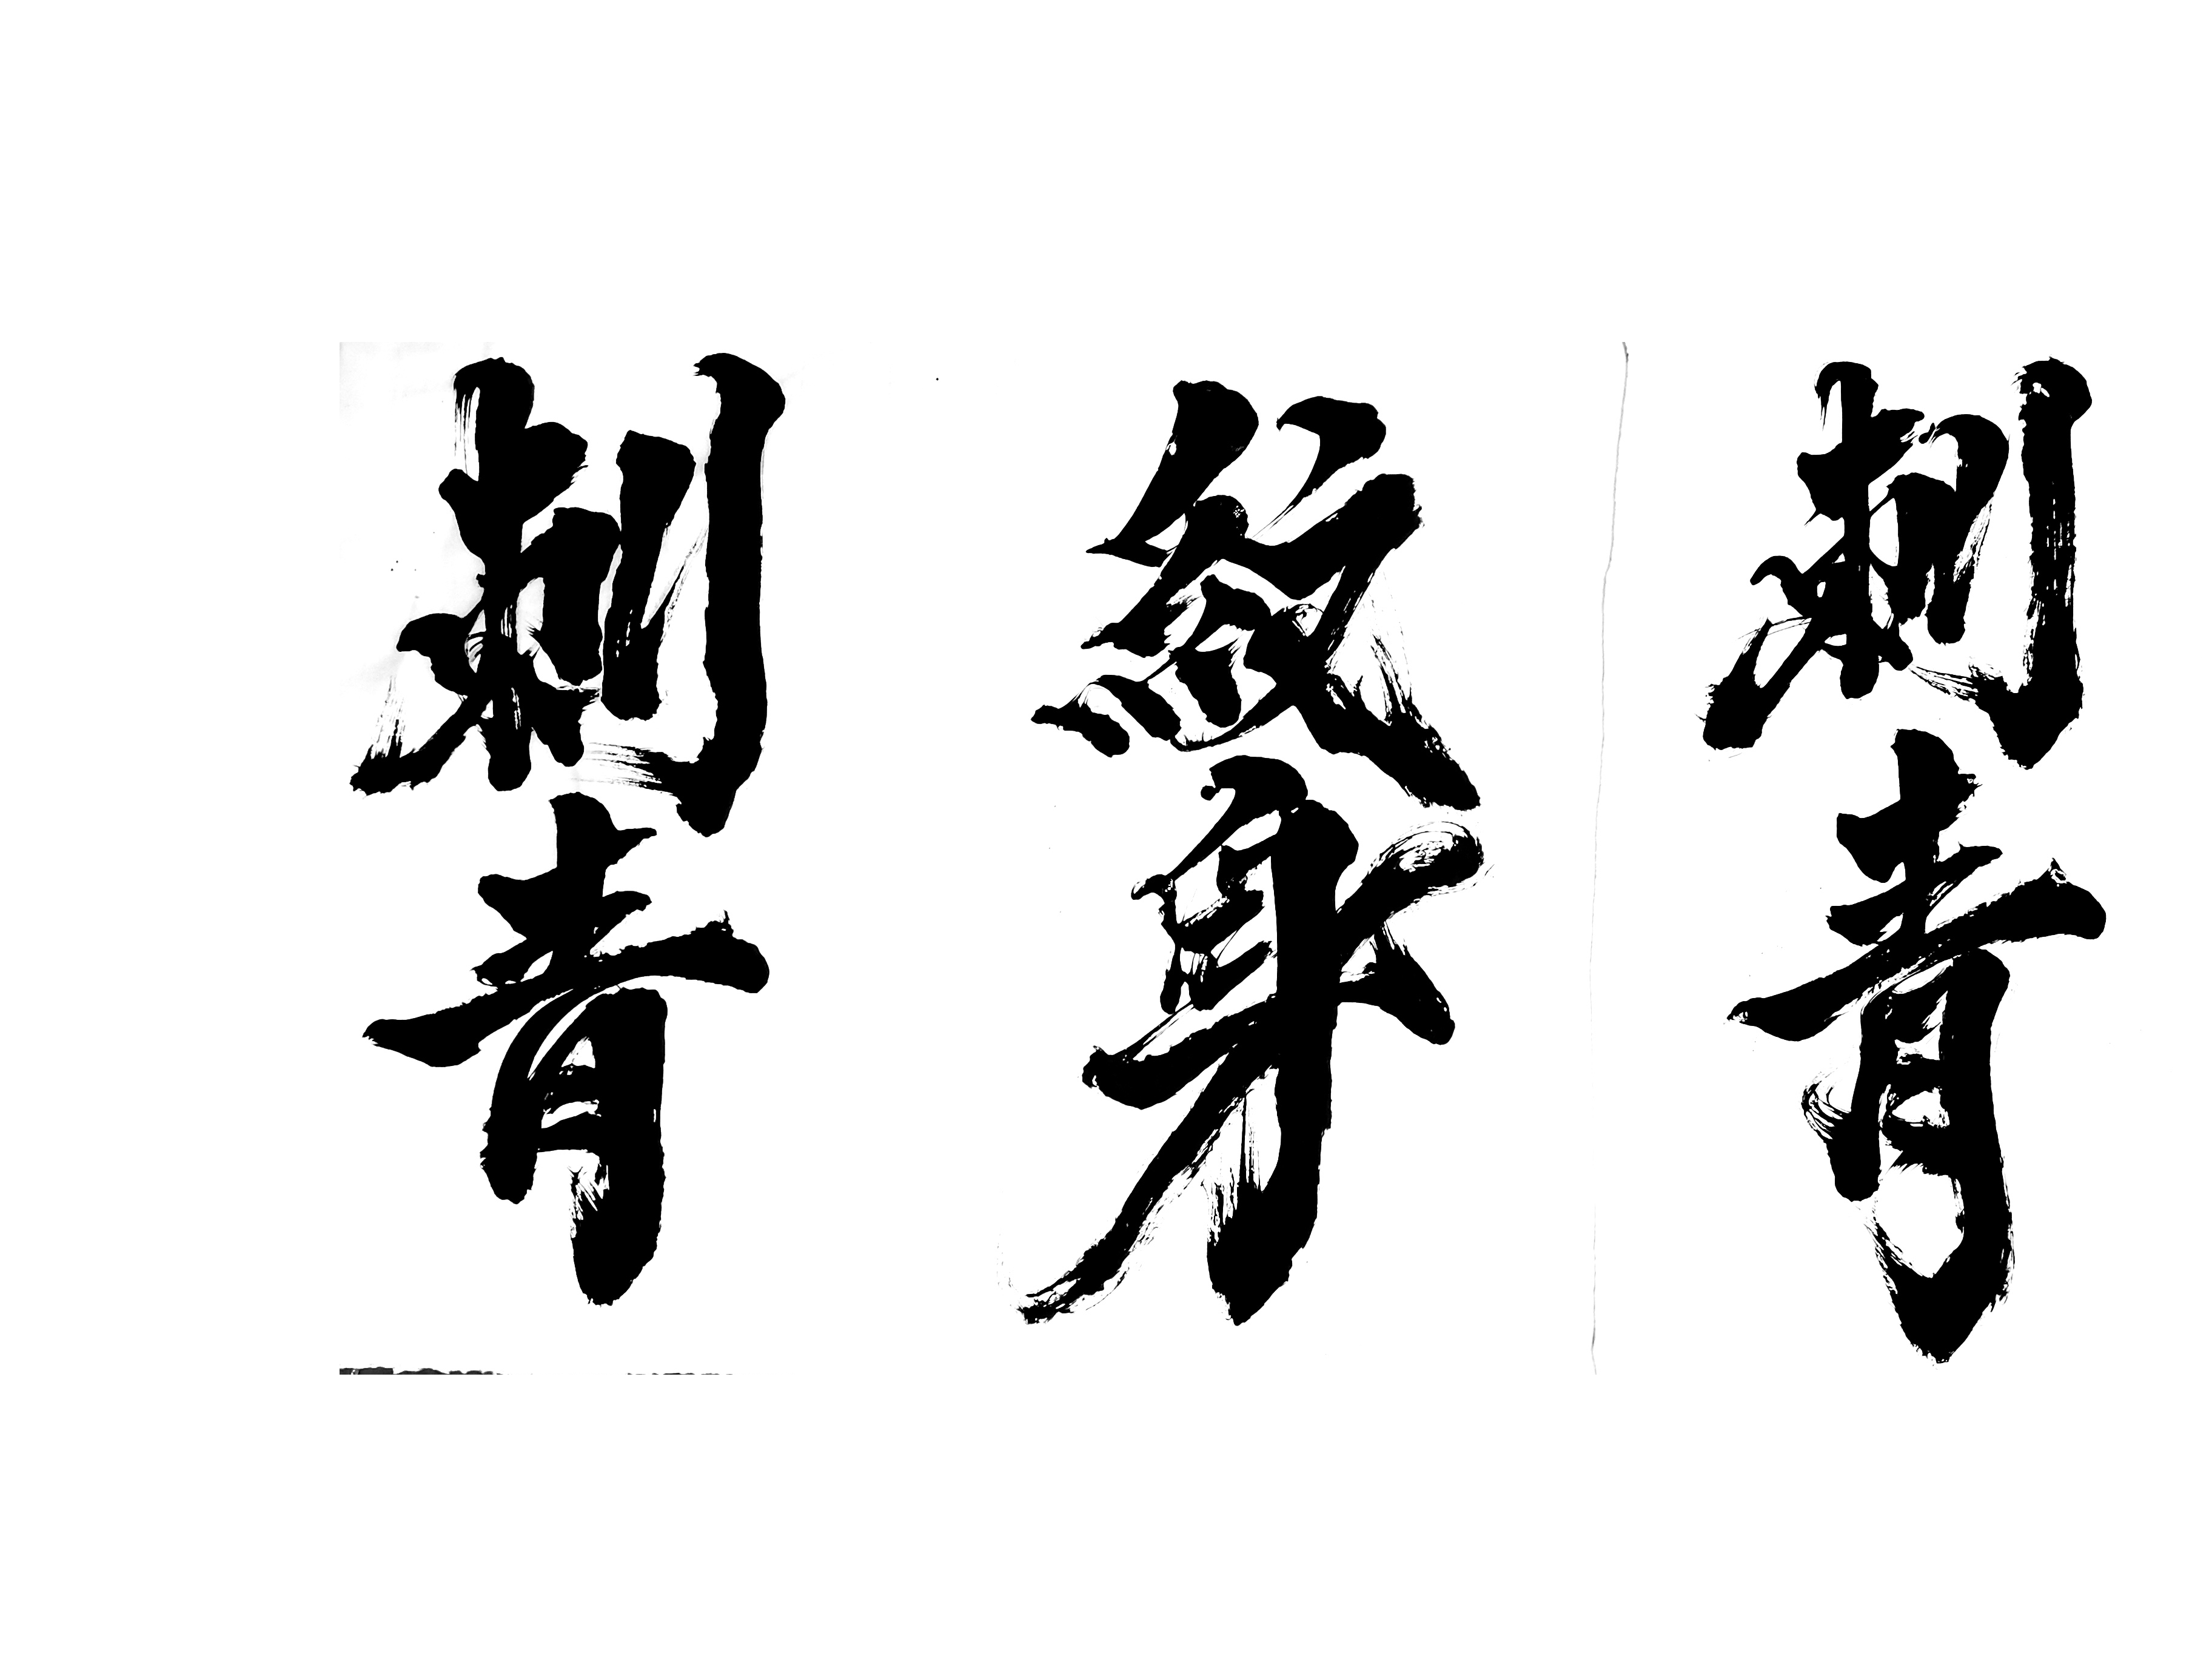 刺青
紋身
刺青